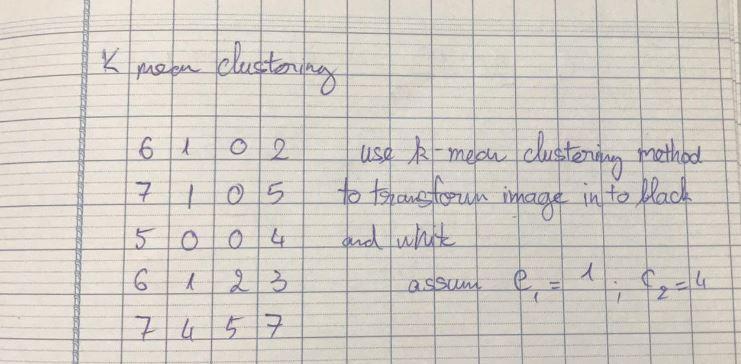 K mean clustering
6 1 0 2 use k-mean clustering method
7 1 0 5 to transform image in to black
5 0 0 4 and white
6 1 2 3 assum C₁ = 1 ; C₂ = 4
7 4 5 7